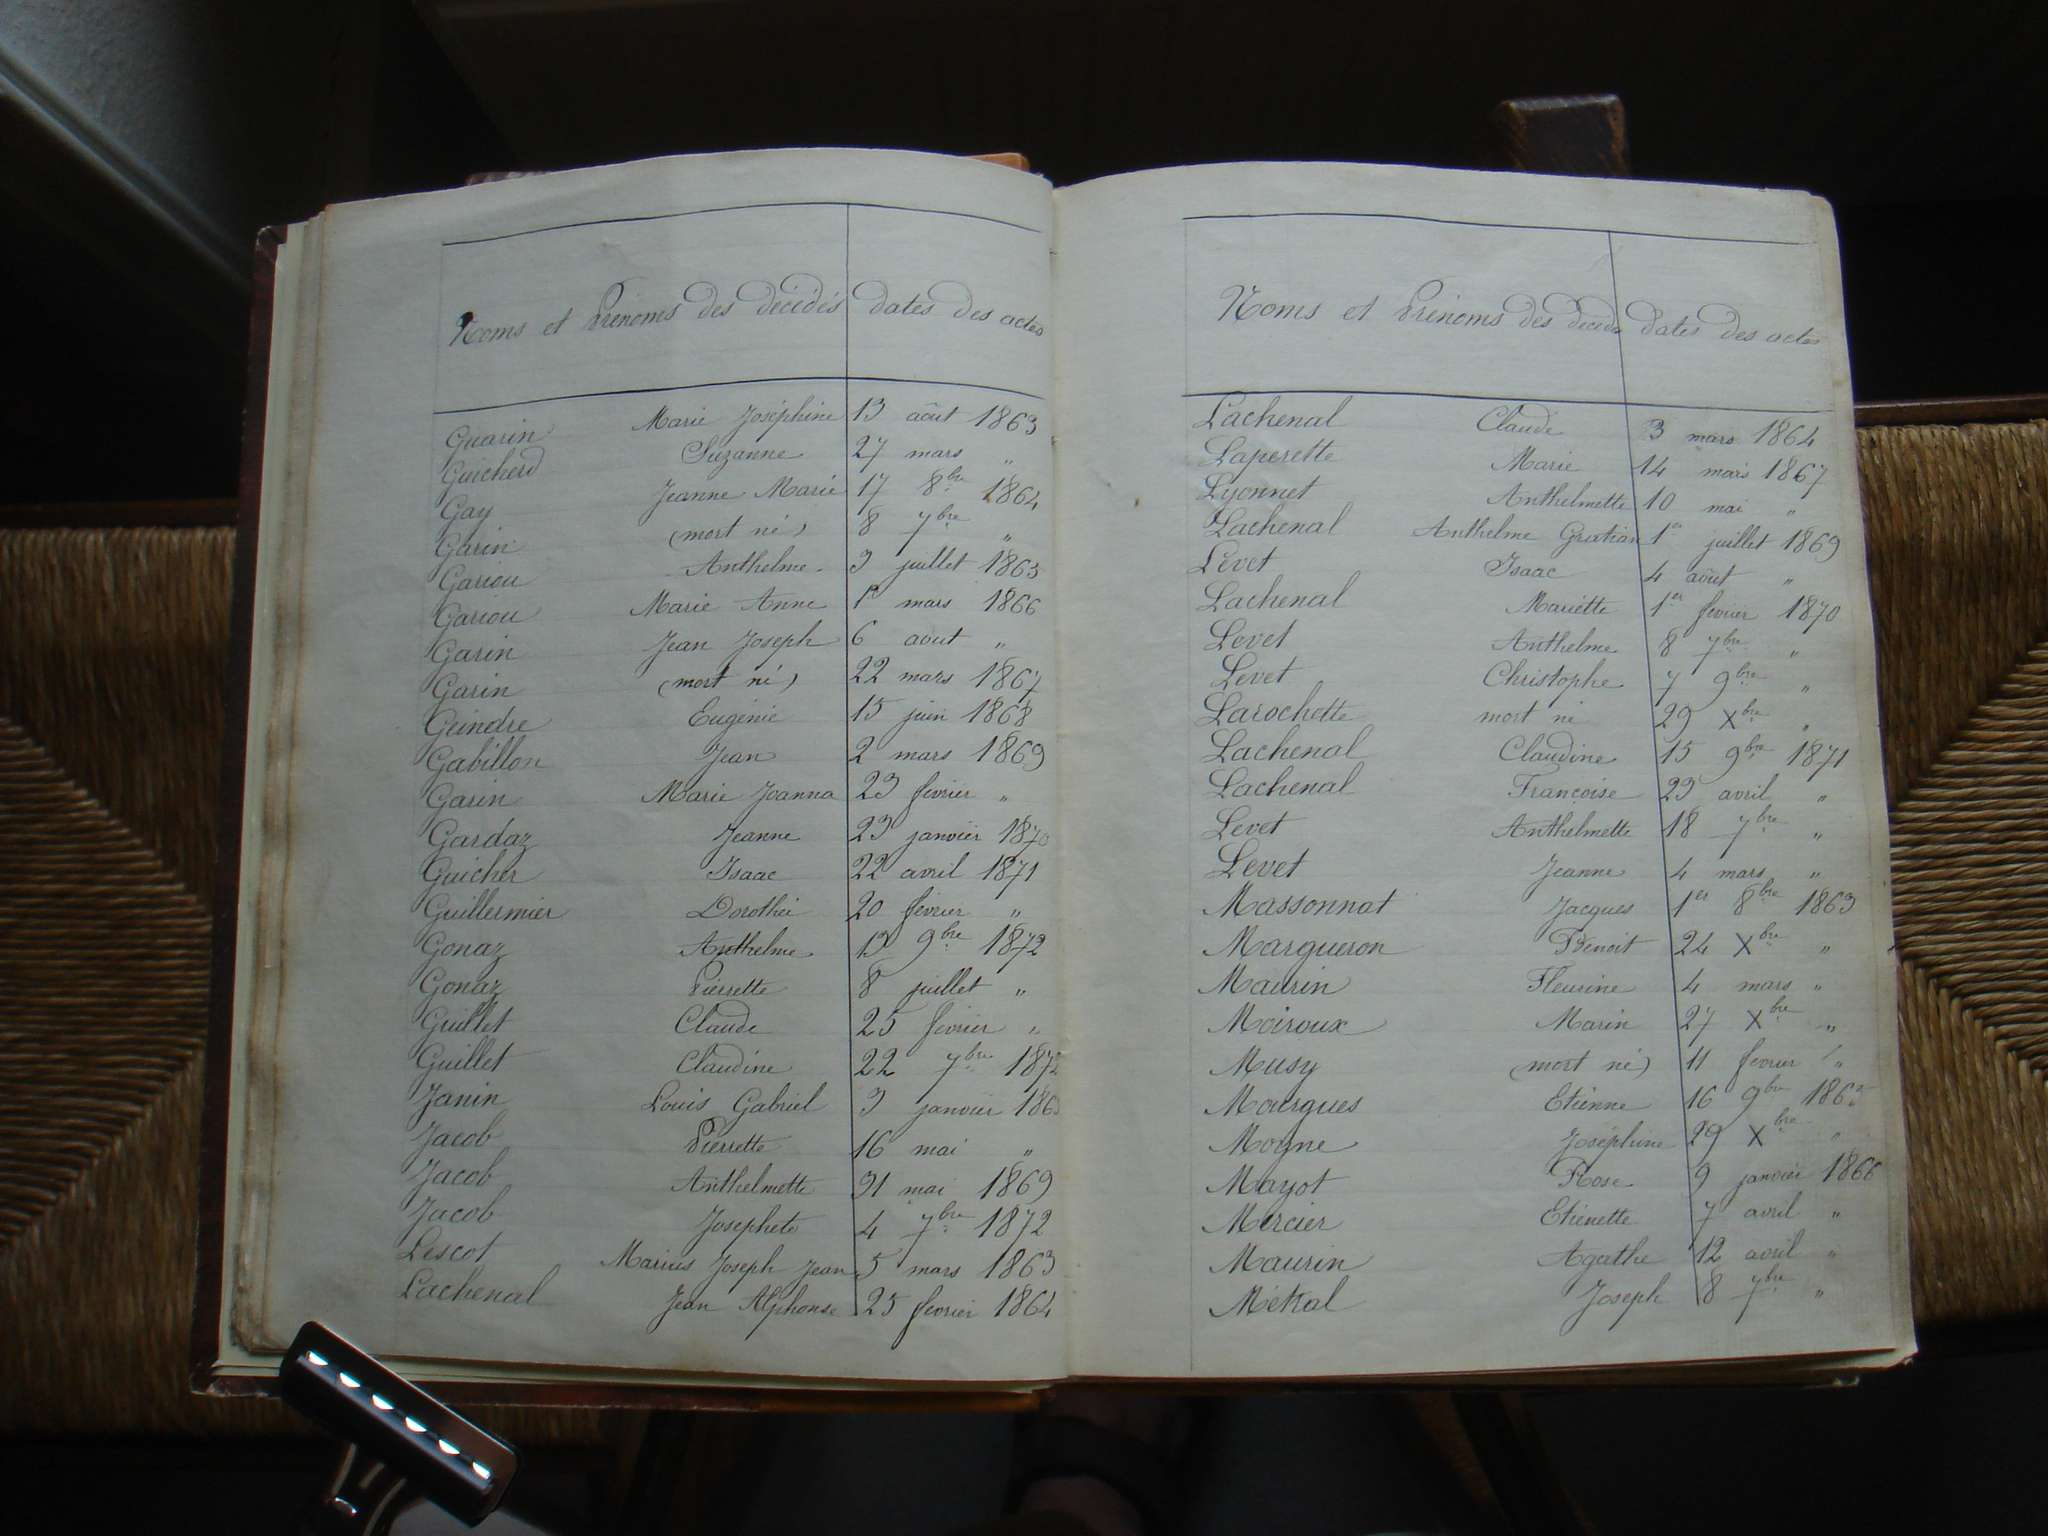 Noms et Prénoms des décédés dates des actes
Guarin Marie Joséphine 13 août 1863
Guicherd Suzanne 27 mars "
Gay Jeanne Marie 17 8bre 1864
Garin (mort né) 8 7bre "
Gariou Anthelme 3 juillet 1865
Gariou Marie Anne 1er mars 1866
Garin Jean Joseph 6 aout "
Garin (mort né) 22 mars 1867
Geindre Eugénie 15 juin 1868
Gabillon Jean 2 mars 1869
Garin Marie Joanna 23 février "
Gardaz Jeanne 23 janvier 1870
Guicher Isaac 22 avril 1871
Guillermier Dorothée 20 février "
Gonaz Anthelme 13 9bre 1872
Gonaz Pierrette 8 juillet "
Guillet Claude 25 février "
Guillet Claudine 22 7bre 1872
Janin Louis Gabriel 3 janvier
Jacob Pierrette 16 mai "
Jacob Anthelmette 31 mai 1869
Jacob Josephete 4 7bre 1872
Lescot Marius Joseph Jean 5 mars 1863
Lachenal Jean Alphonse 25 fevrier 1864
Noms et Prénoms des décédés dates des actes
Lachenal Claude 3 mars 1864
Laperette Marie 14 mars 1867
Lyonnet Anthelmette 10 mai "
Lachenal Anthelme Gratian 1er juillet 1869
Levet Isaac 4 août "
Lachenal Mariette 1er fevrier 1870
Levet Anthelme 8 7bre "
Levet Christophe 7 9bre "
Larochette mort né 29 Xbre "
Lachenal Claudine 15 9bre 1871
Lachenal Françoise 23 avril "
Levet Anthelmette 18 7bre "
Levet Jeanne 4 mars "
Massonnat Jacques 1er 8bre 1863
Margueron Benoit 24 Xbre "
Maurin Fleurine 4 mars "
Moiroux Marin 27 Xbre "
Musy (mort né) 11 fevrier "
Mourgues Etienne 16 9bre 1865
Moyne Joséphine 29 Xbre "
Mayot Rose 9 janvier 1866
Mercier Etienette 7 avril "
Maurin Agathe 12 avril "
Métral Joseph 8 7bre "